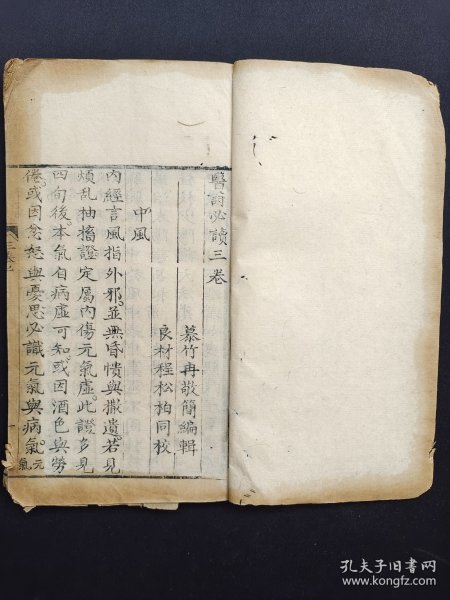 醫詞必讀三卷
慕竹冉敬簡編輯
良材程松柏同校
中風
內經言風指外邪並無昏憒與撒遺若見
煩乱抽搐證定屬內傷元氣虛此證多見
四旬後本氣自病虛可知或因酒色與勞
倦或因忿怒與憂思必識元氣與病氣元氣
孔夫子旧书网
www.kongfz.com